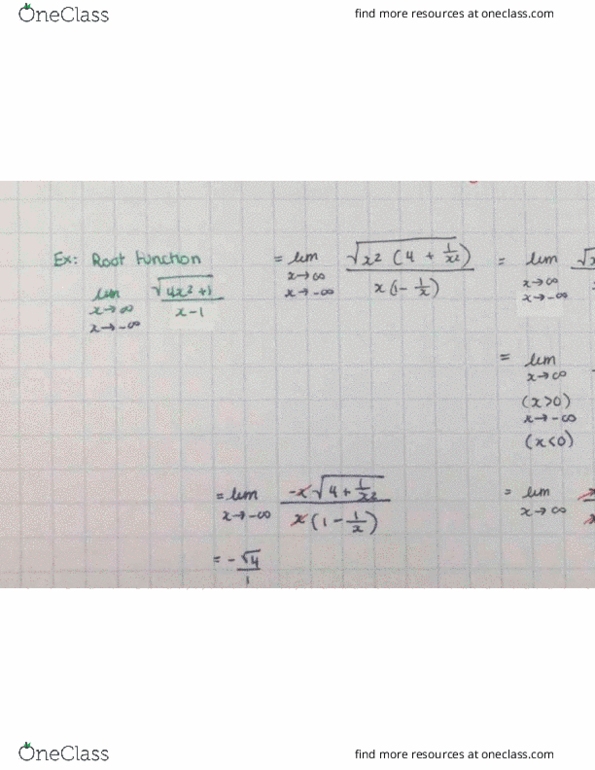 OneClass
find more resources at oneclass.com
Ex: Root Function
lim √(4x² + 1) / (x - 1)
x→∞
x→-∞
= lim √(x² (4 + 1/x²)) / (x(1 - 1/x))
x→∞
x→-∞
= lim √x
x→∞
x→-∞
= lim
x→∞
(x>0)
x→-∞
(x<0)
= lim -x√(4 + 1/x²) / (x(1 - 1/x))
x→-∞
= -√4 / 1
= lim x
x→∞
OneClass
find more resources at oneclass.com